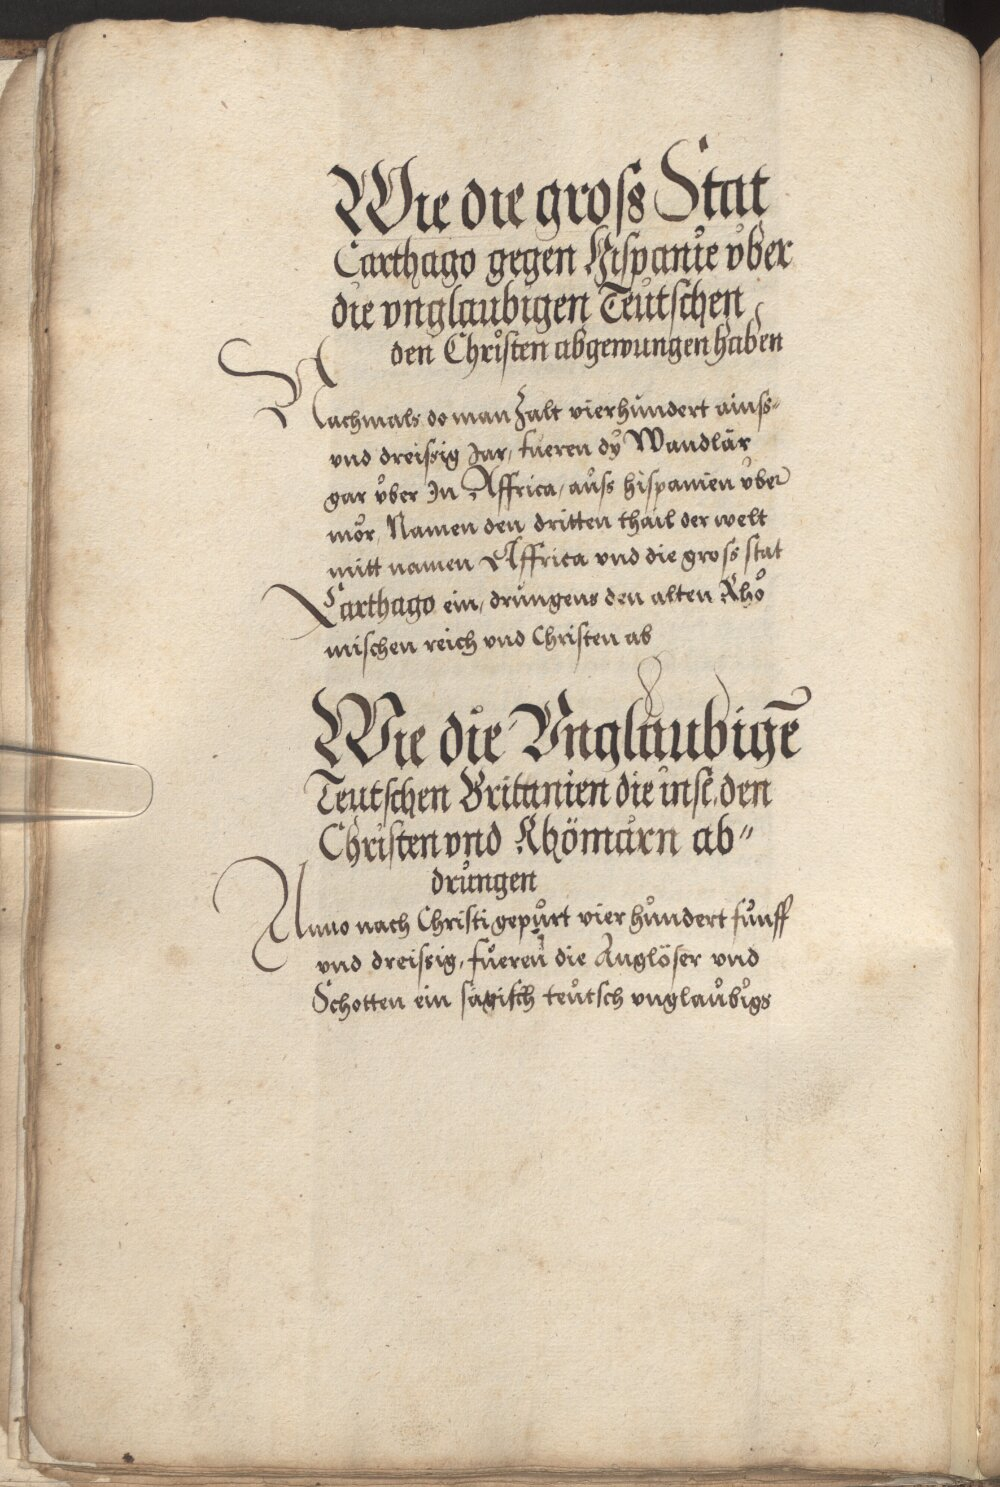 Wie die gross Stat
Carthago gegen Hispanie vber
die vnglaubigen Teutschen
den Christen abgewungen haben
Nachmals do man Zalt vierhundert ainss-
vnd dreissig Jar, fueren dy Wandlär
gar vber In Affrica, auss hispanien vber
mör, Namen den dritten thail der welt
mitt namen Affrica vnd die gross stat
Carthago ein, drungens den alten Rhö
mischen reich vnd Christen ab
Wie die Vnglaubigē
Teutschen Britanien die insel den
Christen vnd Rhömärn ab"
drungen
Anno nach Christi gepurt vier hundert funff
vnd dreissig, fueren die Anglöser vnd
Schotten ein sägisch teutsch vnglaubigs